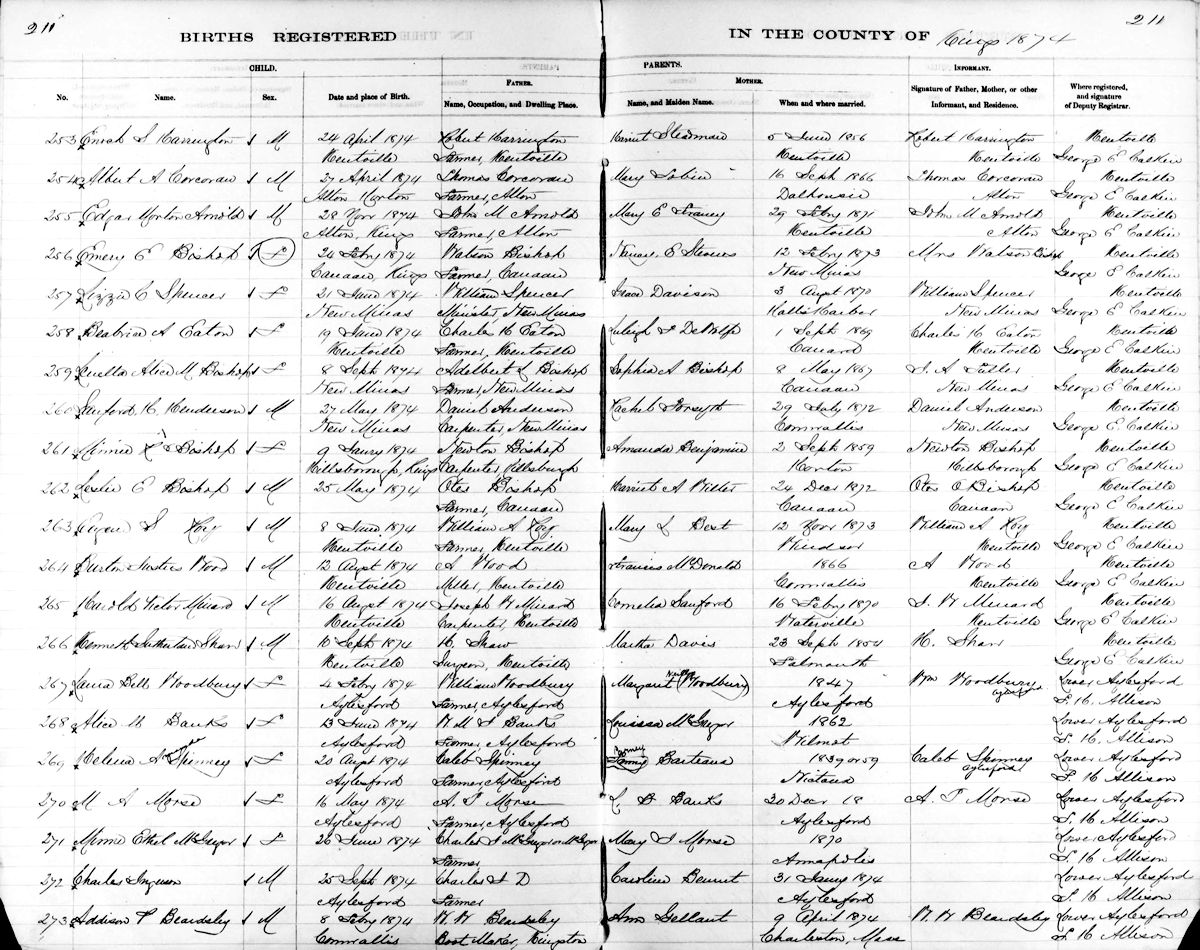 211
211
BIRTHS REGISTERED IN THE COUNTY OF Kings 1874
CHILD. PARENTS. INFORMANT.
Father. Mother.
No. Name. Sex. Date and place of Birth. Name, Occupation, and Dwelling Place. Name, and Maiden Name. When and where married. Signature of Father, Mother, or other Informant, and Residence. Where registered, and signature of Deputy Registrar.
253 Harrington 1 M 24 April 1874 Robert Harrington Harriet Steadman 5 June 1856 Robert Harrington Kentville
Kentville Farmer, Kentville Kentville Kentville George E Calkin
254 Albert A Corcoran 1 M 27 April 1874 Thomas Corcoran Mary Tobin 16 Sept 1866 Thomas Corcoran Kentville
Alton Horton Farmer, Alton Dalhousie Alton George E Calkin
255 Edgar Morton Arnold 1 M 28 Novr 1874 John M Arnold Mary E 29 Feby 1871 John M Arnold Kentville
Alton, Kings Farmer, Alton Kentville Alton George E Calkin
256 Emery E Bishop 1 F 24 Feby 1874 Watson Bishop E Stevens 12 Feby 1873 Mrs Watson Bishop Kentville
Canaan, Kings Farmer, Canaan New Minas George E Calkin
257 Lizzie C Spencer 1 F 21 June 1874 William Spencer Grace Davison 3 Augst 1870 William Spencer Kentville
New Minas Minister New Minas Halls Harbor New Minas George E Calkin
258 Beatrice A Eaton 1 F 19 June 1874 Charles H Eaton DeWolf 1 Sept 1869 Charles H Eaton Kentville
Kentville Farmer, Kentville Canard Kentville George E Calkin
259 Luella Alice M Bishop 1 F 8 Sept 1874 Adelbert L Bishop Sophia A Bishop 8 May 1867 S. A. Fuller Kentville
New Minas Farmer, New Minas Canaan New Minas George E Calkin
260 Sanford H. Henderson 1 M 27 May 1874 Daniel Anderson Rachel Forsyth 29 July 1872 Daniel Anderson Kentville
New Minas Carpenter, New Minas Cornwallis New Minas George E Calkin
261 Minnie Bishop 1 F 9 Jany 1874 Newton Bishop Amanda Benjamin 2 Sept 1859 Newton Bishop Kentville
Hillsborough, Kings Carpenter, Hillsburgh Horton Hillsborough George E Calkin
262 Leslie E Bishop 1 M 25 May 1874 Otes Bishop Harriet A 24 Decr 1872 Otes O Bishop Kentville
Farmer, Canaan Canaan Canaan George E Calkin
263 S 1 M 8 June 1874 William A Mary L Bent 12 Novr 1873 William A Kentville
Kentville Farmer, Kentville Windsor Kentville George E Calkin
264 Burton Wood 1 M 12 Augst 1874 A Wood Francis McDonald 1866 A Wood Kentville
Kentville Miller, Kentville Cornwallis Kentville George E Calkin
265 Harold Victor Minard 1 M 16 Augst 1874 Joseph W Minard Cornelia Sanford 16 Feby 1870 J. W Minard Kentville
Kentville Carpenter, Kentville Waterville Kentville George E Calkin
266 Kenneth Sutherland Shaw 1 M 10 Sept 1874 H. Shaw Martha Davis 23 Sept 1854 H. Shaw Kentville
Kentville Surgeon, Kentville Falmouth George E Calkin
267 Laura Bell Woodbury 1 F 4 Feby 1874 William Woodbury Margaret (Woodbury) 1847 Wm Woodbury Lower Aylesford
Aylesford Farmer, Aylesford Aylesford Aylesford F. 16. Allison
268 Alice M Banks 1 F 13 June 1874 W. M. S Banks Louissa McGregor 1862 Lower Aylesford
Aylesford Farmer, Aylesford Wilmot F. 16. Allison
269 Helena A Spinney 1 F 20 Augt 1874 Caleb Spinney Fanny Barteaux 1839 or 59 Caleb Spinney Lower Aylesford
Aylesford Farmer, Aylesford Nictaux Aylesford F. 16 Allison
270 M A Morse 1 F 16 May 1874 A. T Morse L. B Banks 20 Decr 18 A. T Morse Lower Aylesford
Aylesford Farmer, Aylesford Aylesford F. 16 Allison
271 Minnie Ethel McGregor 1 F 26 June 1874 Charles S McGregor or McGregor Mary S Morse 1870 Lower Aylesford
Farmer Annapolis F. 16 Allison
272 Charles 1 M 25 Sept 1874 Charles D Caroline Bennet 31 Jany 1874 Lower Aylesford
Aylesford Farmer Aylesford F. 16 Allison
273 Addison P Beardsley 1 M 8 Feby 1874 W. W Beardsley Ann Gellant 9 April 1874 W. W Beardsley Lower Aylesford
Cornwallis Boot Maker, Kingston Charleston, Mass F. 16 Allison